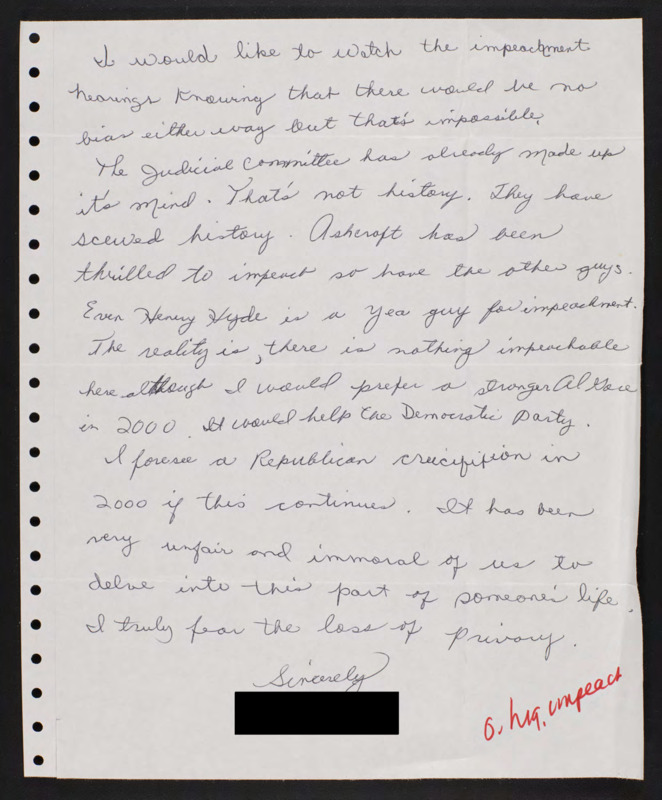 I would like to watch the impeachment
hearings knowing that there would be no
bias either way but that's impossible.
The Judicial Committee has already made up
it's mind. That's not history. They have
scewed history. Ashcroft has been
thrilled to impeach so have the other guys.
Even Henry Hyde is a Yea guy for impeachment.
The reality is, there is nothing impeachable
here although I would prefer a stronger Al Gore
in 2000. It would help the Democratic Party.
I foresee a Republican crucifition in
2000 if this continues. It has been
very unfair and immoral of us to
delve into this part of someone's life.
I truly fear the loss of privacy.
Sincerely
o. hrg. impeach